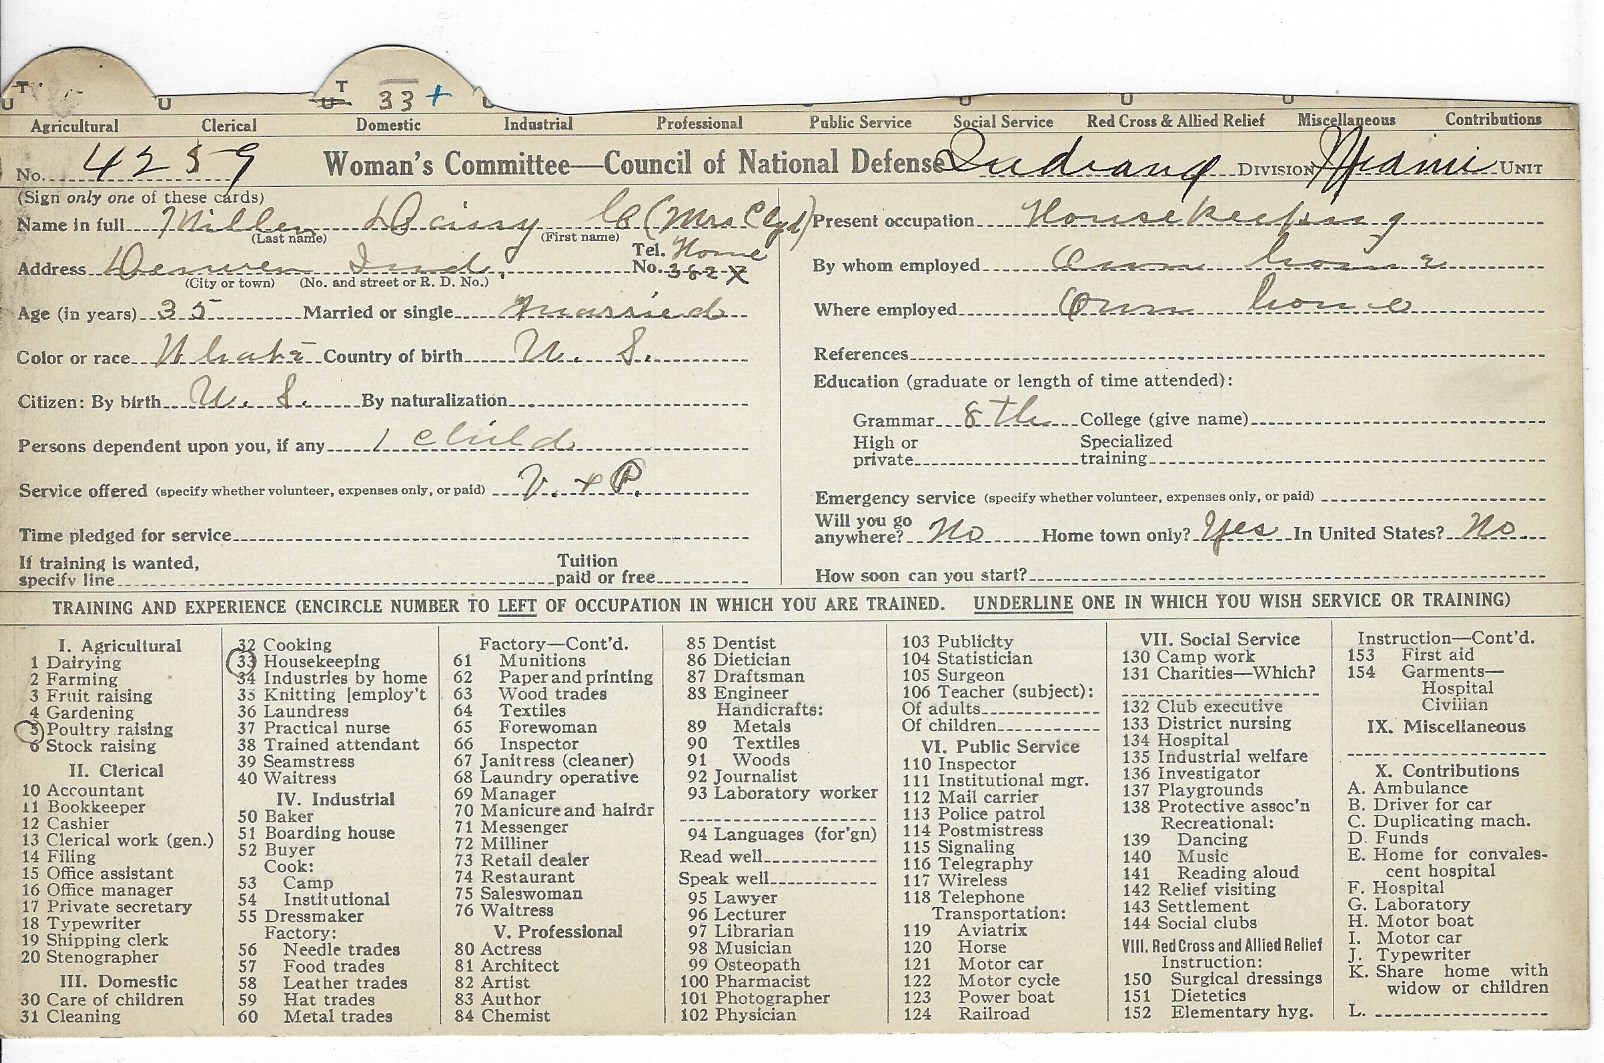 T T
U U U 33 + U U U U
Agricultural Clerical Domestic Industrial Professional Public Service Social Service Red Cross & Allied Relief Miscellaneous Contributions
No. 4259 Woman's Committee—Council of National Defense Indiana DIVISION Miami UNIT
(Sign only one of these cards)
Name in full Miller Daisy C (Mrs Clyd)
(Last name) (First name)
Address Denver Ind. Tel. No. Home 382-X
(City or town) (No. and street or R. D. No.)
Age (in years) 35 Married or single married
Color or race White Country of birth U. S.
Citizen: By birth U. S. By naturalization
Persons dependent upon you, if any 1 child
Service offered (specify whether volunteer, expenses only, or paid) V. + P.
Time pledged for service
If training is wanted, Tuition
specify line paid or free
Present occupation Housekeeping
By whom employed Own home
Where employed Own home
References
Education (graduate or length of time attended):
Grammar 8th College (give name)
High or Specialized
private training
Emergency service (specify whether volunteer, expenses only, or paid)
Will you go
anywhere? No Home town only? Yes In United States? No
How soon can you start?
TRAINING AND EXPERIENCE (ENCIRCLE NUMBER TO LEFT OF OCCUPATION IN WHICH YOU ARE TRAINED. UNDERLINE ONE IN WHICH YOU WISH SERVICE OR TRAINING)
I. Agricultural
1 Dairying
2 Farming
3 Fruit raising
4 Gardening
5 Poultry raising
6 Stock raising
II. Clerical
10 Accountant
11 Bookkeeper
12 Cashier
13 Clerical work (gen.)
14 Filing
15 Office assistant
16 Office manager
17 Private secretary
18 Typewriter
19 Shipping clerk
20 Stenographer
III. Domestic
30 Care of children
31 Cleaning
32 Cooking
33 Housekeeping
34 Industries by home
35 Knitting [employ't
36 Laundress
37 Practical nurse
38 Trained attendant
39 Seamstress
40 Waitress
IV. Industrial
50 Baker
51 Boarding house
52 Buyer
Cook:
53 Camp
54 Institutional
55 Dressmaker
Factory:
56 Needle trades
57 Food trades
58 Leather trades
59 Hat trades
60 Metal trades
Factory—Cont'd.
61 Munitions
62 Paper and printing
63 Wood trades
64 Textiles
65 Forewoman
66 Inspector
67 Janitress (cleaner)
68 Laundry operative
69 Manager
70 Manicure and hairdr
71 Messenger
72 Milliner
73 Retail dealer
74 Restaurant
75 Saleswoman
76 Waitress
V. Professional
80 Actress
81 Architect
82 Artist
83 Author
84 Chemist
85 Dentist
86 Dietician
87 Draftsman
88 Engineer
Handicrafts:
89 Metals
90 Textiles
91 Woods
92 Journalist
93 Laboratory worker
94 Languages (for'gn)
Read well
Speak well
95 Lawyer
96 Lecturer
97 Librarian
98 Musician
99 Osteopath
100 Pharmacist
101 Photographer
102 Physician
103 Publicity
104 Statistician
105 Surgeon
106 Teacher (subject):
Of adults
Of children
VI. Public Service
110 Inspector
111 Institutional mgr.
112 Mail carrier
113 Police patrol
114 Postmistress
115 Signaling
116 Telegraphy
117 Wireless
118 Telephone
Transportation:
119 Aviatrix
120 Horse
121 Motor car
122 Motor cycle
123 Power boat
124 Railroad
VII. Social Service
130 Camp work
131 Charities—Which?
132 Club executive
133 District nursing
134 Hospital
135 Industrial welfare
136 Investigator
137 Playgrounds
138 Protective assoc'n
Recreational:
139 Dancing
140 Music
141 Reading aloud
142 Relief visiting
143 Settlement
144 Social clubs
VIII. Red Cross and Allied Relief
Instruction:
150 Surgical dressings
151 Dietetics
152 Elementary hyg.
Instruction—Cont'd.
153 First aid
154 Garments—
Hospital
Civilian
IX. Miscellaneous
X. Contributions
A. Ambulance
B. Driver for car
C. Duplicating mach.
D. Funds
E. Home for convales-
cent hospital
F. Hospital
G. Laboratory
H. Motor boat
I. Motor car
J. Typewriter
K. Share home with
widow or children
L.